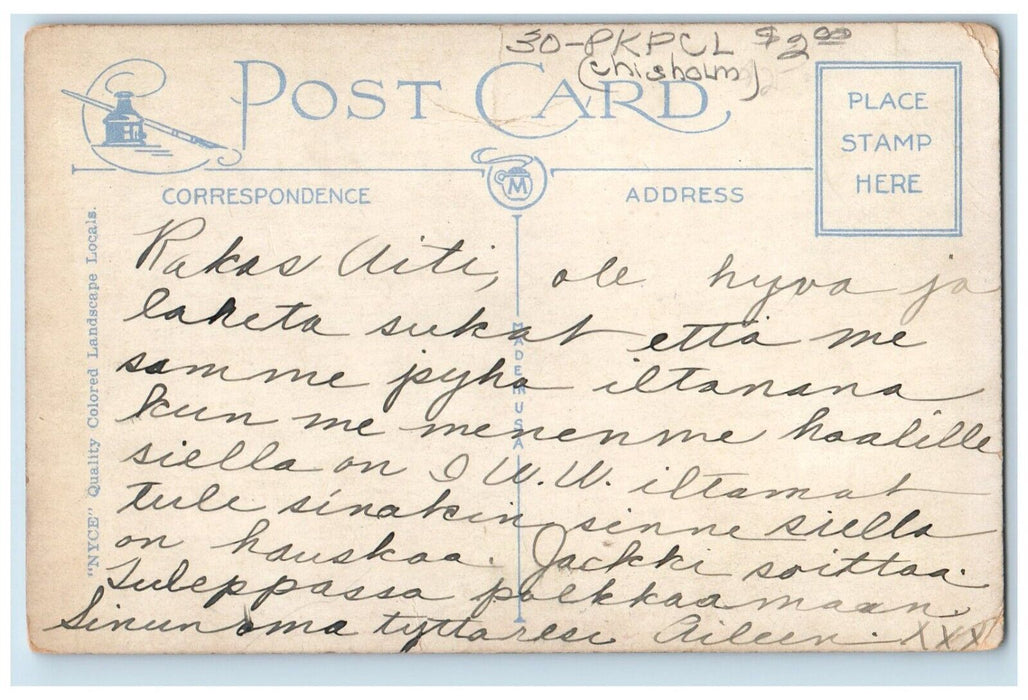 30-PKPCL $2.00
(Chisholm)
POST CARD
PLACE
STAMP
HERE
M
CORRESPONDENCE
ADDRESS
"NYCE" Quality Colored Landscape Locals.
MADE IN USA
Rakas Aiti, ole hyva ja
laheta sukat etta me
samme pyha iltanana
kun me menenme haalille
siella on I W.W. iltamat
tule sinakin sinne siella
on hauskaa. Jackki soittaa.
Tuleppassa polkkaamaan.
Sinun oma tyttaresi Aileen. XXX